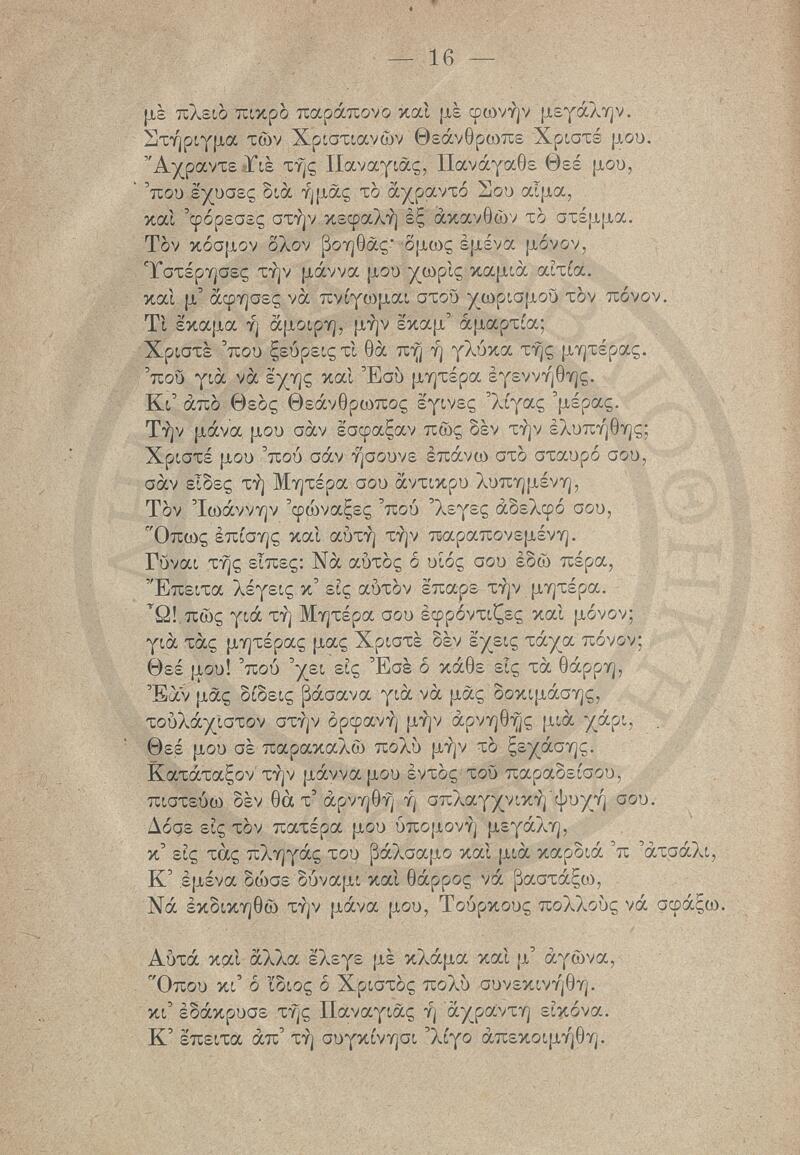 — 16 —
μὲ πλειὸ πικρὸ παράπονο καὶ μὲ φωνὴν μεγάλην.
Στήριγμα τῶν Χριστιανῶν Θεάνθρωπε Χριστέ μου.
Ἄχραντε Υἱὲ τῆς Παναγιᾶς, Πανάγαθε Θεέ μου,
᾿που ἔχυσες διὰ ἡμᾶς τὸ ἄχραντό Σου αἷμα,
καὶ ᾿φόρεσες στὴν κεφαλὴ ἐξ ἀκανθῶν τὸ στέμμα.
Τὸν κόσμον ὅλον βοηθᾷς· ὅμως ἐμένα μόνον,
Ὑστέρησες τὴν μάννα μου χωρὶς καμιὰ αἰτία.
καὶ μ᾿ ἄφησες νὰ πνίγωμαι στοῦ χωρισμοῦ τὸν πόνον.
Τὶ ἔκαμα ἡ ἄμοιρη, μὴν ἔκαμ᾿ ἁμαρτία;
Χριστὲ ᾿που ξεύρεις τὶ θὰ πῇ ἡ γλύκα τῆς μητέρας.
᾿ποῦ γιὰ νὰ ἔχῃς καὶ Ἐσὺ μητέρα ἐγεννήθης.
Κι᾿ ἀπὸ Θεὸς Θεάνθρωπος ἔγινες ᾿λίγας ᾿μέρας.
Τὴν μάνα μου σὰν ἔσφαξαν πῶς δὲν τὴν ἐλυπήθης;
Χριστέ μου ᾿πού σάν ἤσουνε ἐπάνω στὸ σταυρό σου,
σὰν εἶδες τὴ Μητέρα σου ἄντικρυ λυπημένη,
Τὸν Ἰωάννην ᾿φώναξες ᾿πού ᾿λεγες ἀδελφό σου,
Ὅπως ἐπίσης καὶ αὐτὴ τὴν παραπονεμένη.
Γύναι τῆς εἶπες: Νὰ αὐτὸς ὁ υἱός σου ἐδῶ πέρα,
Ἔπειτα λέγεις κ᾿ εἰς αὐτὸν ἔπαρε τὴν μητέρα.
Ὦ! πῶς γιά τὴ Μητέρα σου ἐφρόντιζες καὶ μόνον;
γιὰ τὰς μητέρας μας Χριστὲ δὲν ἔχεις τάχα πόνον;
Θεέ μου! ᾿πού ᾿χει εἰς Ἐσὲ ὁ κάθε εἷς τὰ θάρρη,
Ἐὰν μᾶς δίδεις βάσανα γιὰ νὰ μᾶς δοκιμάσῃς,
τοὐλάχιστον στὴν ὀρφανὴ μὴν ἀρνηθῇς μιὰ χάρι,
Θεέ μου σὲ παρακαλῶ πολὺ μὴν τὸ ξεχάσῃς.
Κατάταξον τὴν μάννα μου ἐντὸς τοῦ παραδείσου,
πιστεύω δὲν θὰ τ᾿ ἀρνηθῇ ἡ σπλαγχνικὴ ψυχή σου.
Δόσε εἰς τὸν πατέρα μου ὑπομονὴ μεγάλη,
κ᾿ εἰς τὰς πληγάς του βάλσαμο καὶ μιὰ καρδιά ᾿π ᾿ἀτσάλι,
Κ᾿ ἐμένα δῶσε δύναμι καὶ θάρρος νά βαστάξω,
Νά ἐκδικηθῶ τὴν μάνα μου, Τούρκους πολλοὺς νά σφάξω.
Αὐτά καὶ ἄλλα ἔλεγε μὲ κλάμα καὶ μ᾿ ἀγῶνα,
Ὅπου κι᾿ ὁ ἴδιος ὁ Χριστὸς πολὺ συνεκινήθη.
κι᾿ ἐδάκρυσε τῆς Παναγιᾶς ἡ ἄχραντη εἰκόνα.
Κ᾿ ἔπειτα ἀπ᾿ τὴ συγκίνησι ᾿λίγο ἀπεκοιμήθη.